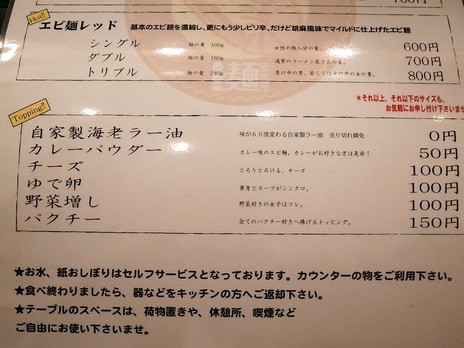 700円
Hot!!
エビ麺レッド 基本のエビ麺を濃縮し、更にもう少しピリ辛、だけど胡麻風味でマイルドに仕上げたエビ麺
シングル 麺の量 100g 女性の腹八分の量。 600円
ダブル 麺の量 160g 通常のラーメン屋さんの量。 700円
トリプル 麺の量 240g 男の中の男、若しくは女の中の女の量。 800円
麺
＊それ以上、それ以下のサイズも、
お気軽にお申し付け下さいませ
Topping!!
自家製海老ラー油 味が60度変わる自家製ラー油 売り切れ御免 0円
カレーパウダー カレー味のエビ麺。カレーがお好きな方は是非! 50円
チーズ とろりとろける、チーズ 100円
ゆで卵 黄身とスープがシンクロ。 100円
野菜増し 野菜好きの女子はコレ。 100円
パクチー 全てのパクチー好きへ捧げるトッピング。 150円
★お水、紙おしぼりはセルフサービスとなっております。カウンターの物をご利用下さい。
★食べ終わりましたら、器などをキッチンの方へご返却下さい。
★テーブルのスペースは、荷物置きや、休憩所、喫煙など
ご自由にお使い下さいませ。